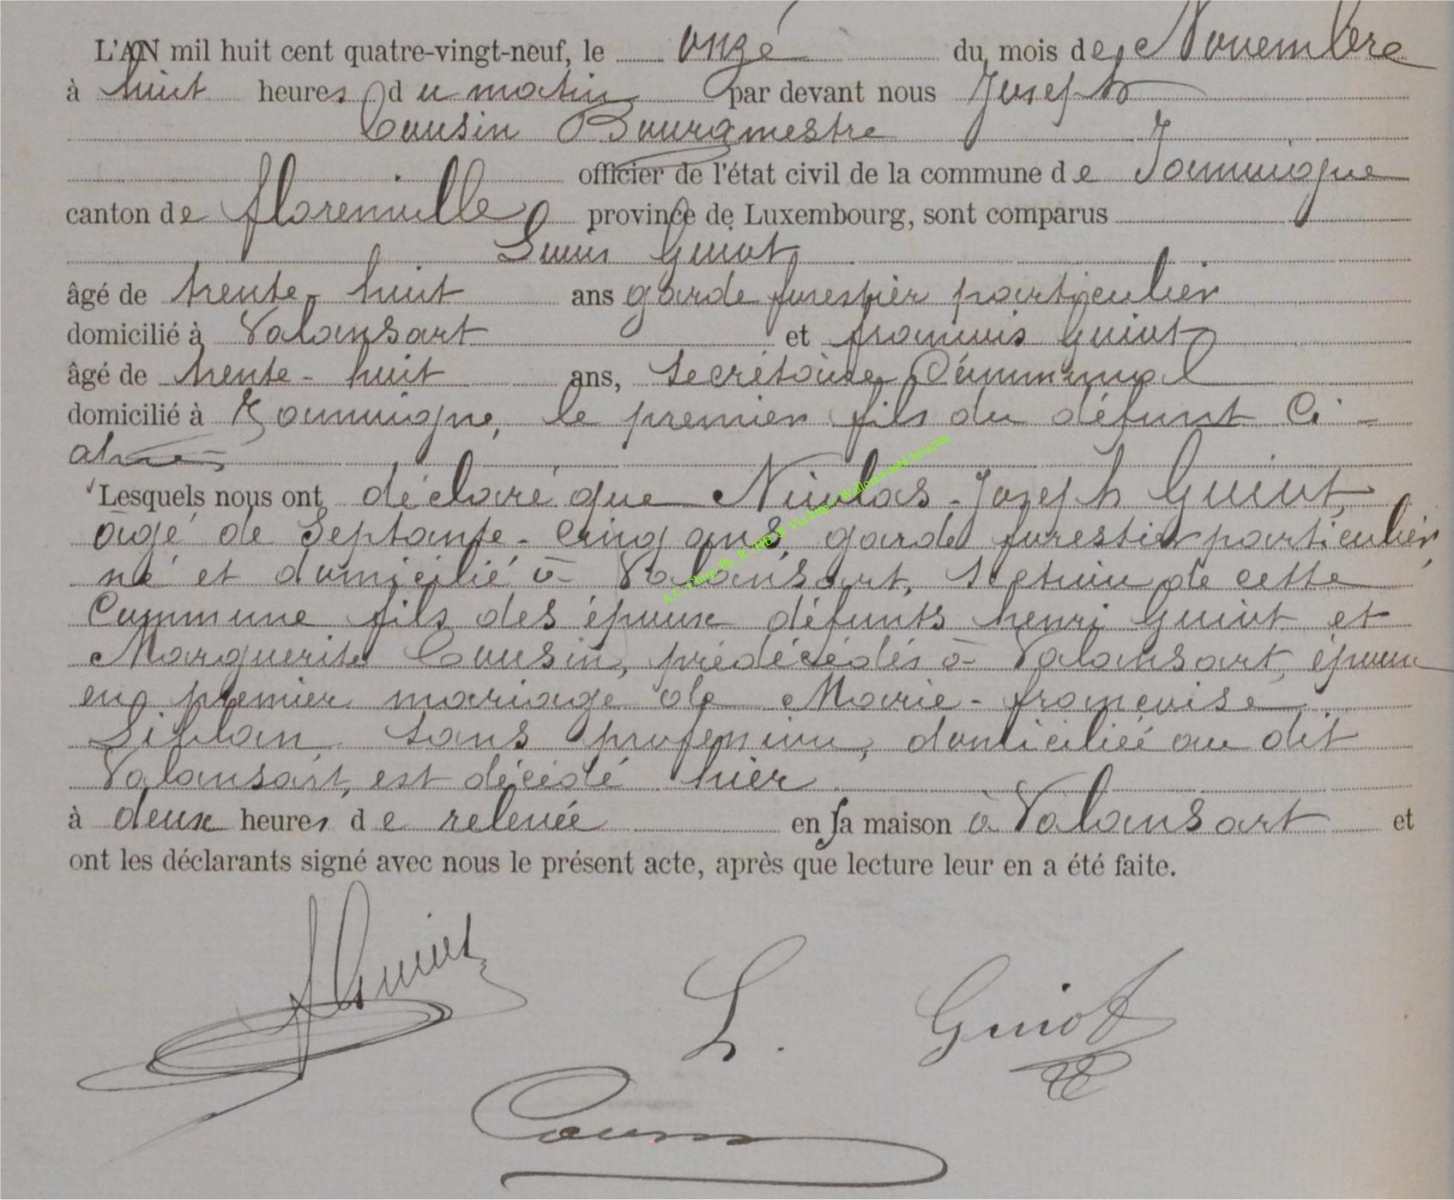 L'AN mil huit cent quatre-vingt-neuf, le onze du mois de Novembre
à huit heures du matin par devant nous Joseph
Cousin Bourgmestre
officier de l'état civil de la commune de Jamoigne
canton de florenville province de Luxembourg, sont comparus
Louis Guiot
âgé de trente-huit ans garde forestier particulier
domicilié à Valansart et francois Guiot
âgé de trente-huit ans, secrétaire Communal
domicilié à Jamoigne, le premier fils du défunt Ci-
après
Lesquels nous ont déclaré que Nicolas-Joseph Guiot,
âgé de septante-cinq ans, garde forestier particulier
né et domicilié à Valansart, section de cette
Commune fils des époux défunts henri Guiot et
Marguerite Cousin, prédécédés à Valansart, époux
en premier mariage de Marie-françoise
sans profession, domiciliée au dit
Valansart, est décédé hier
à deux heures de relevée en sa maison à Valansart et
ont les déclarants signé avec nous le présent acte, après que lecture leur en a été faite.
f Guiot
L. Guiot
Cousin